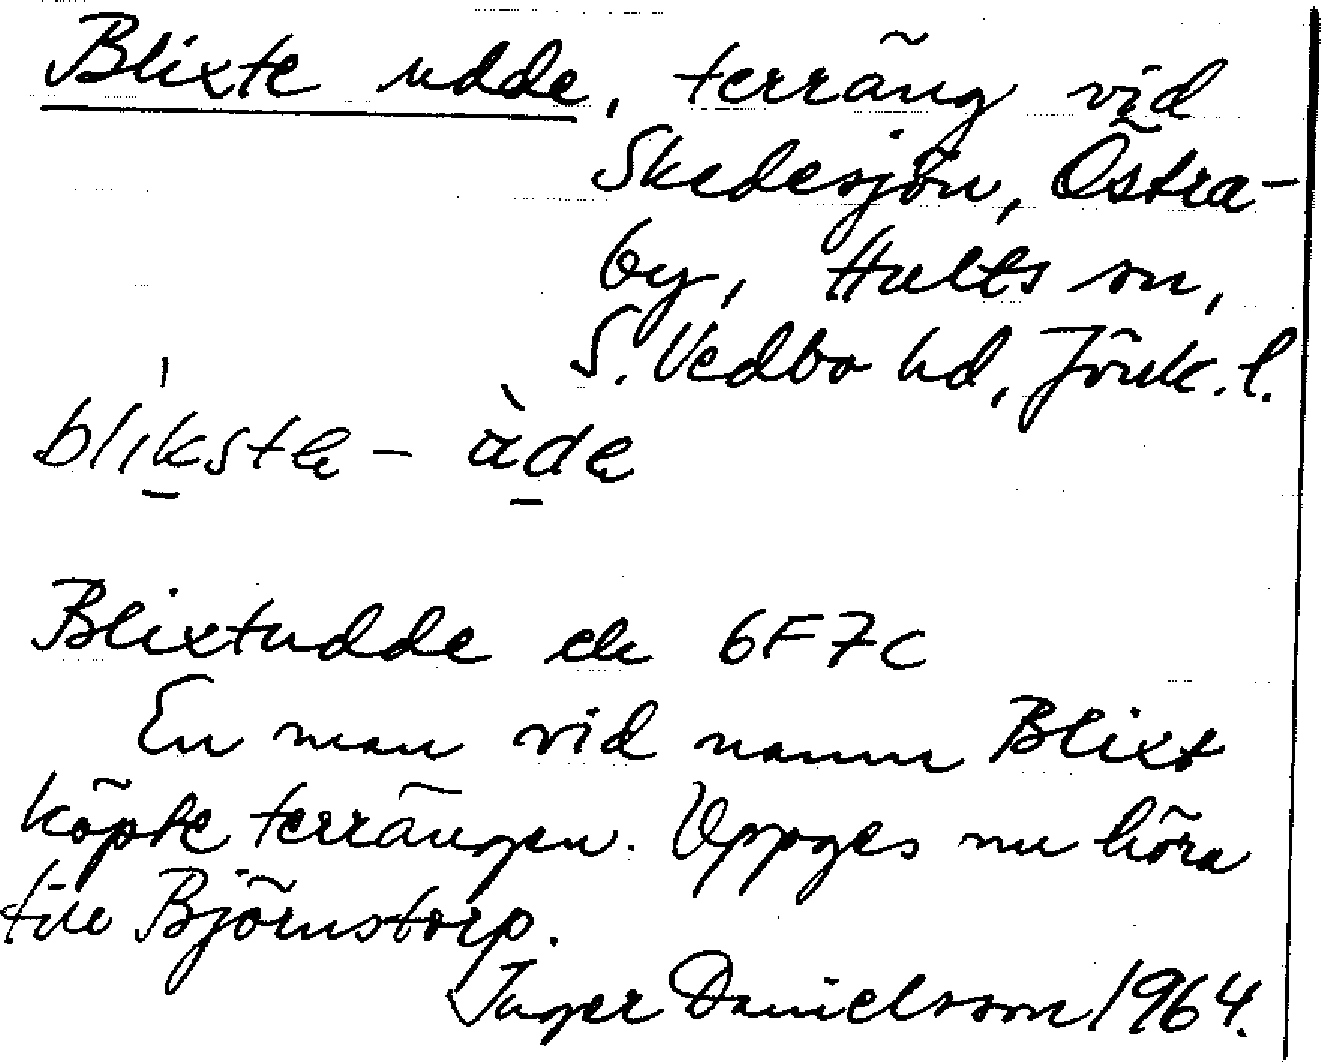 Blixte udde, terräng vid
Skedesjön, Östra-
by, Hults sn,
S. Vedbo hd, Jönk. l.
blikste - àde
Blixtudde ek 6F7c
En man vid namn Blixt
köpte terrängen. Uppges nu höra
till Björnstorp.
Inger Danielsson 1964.